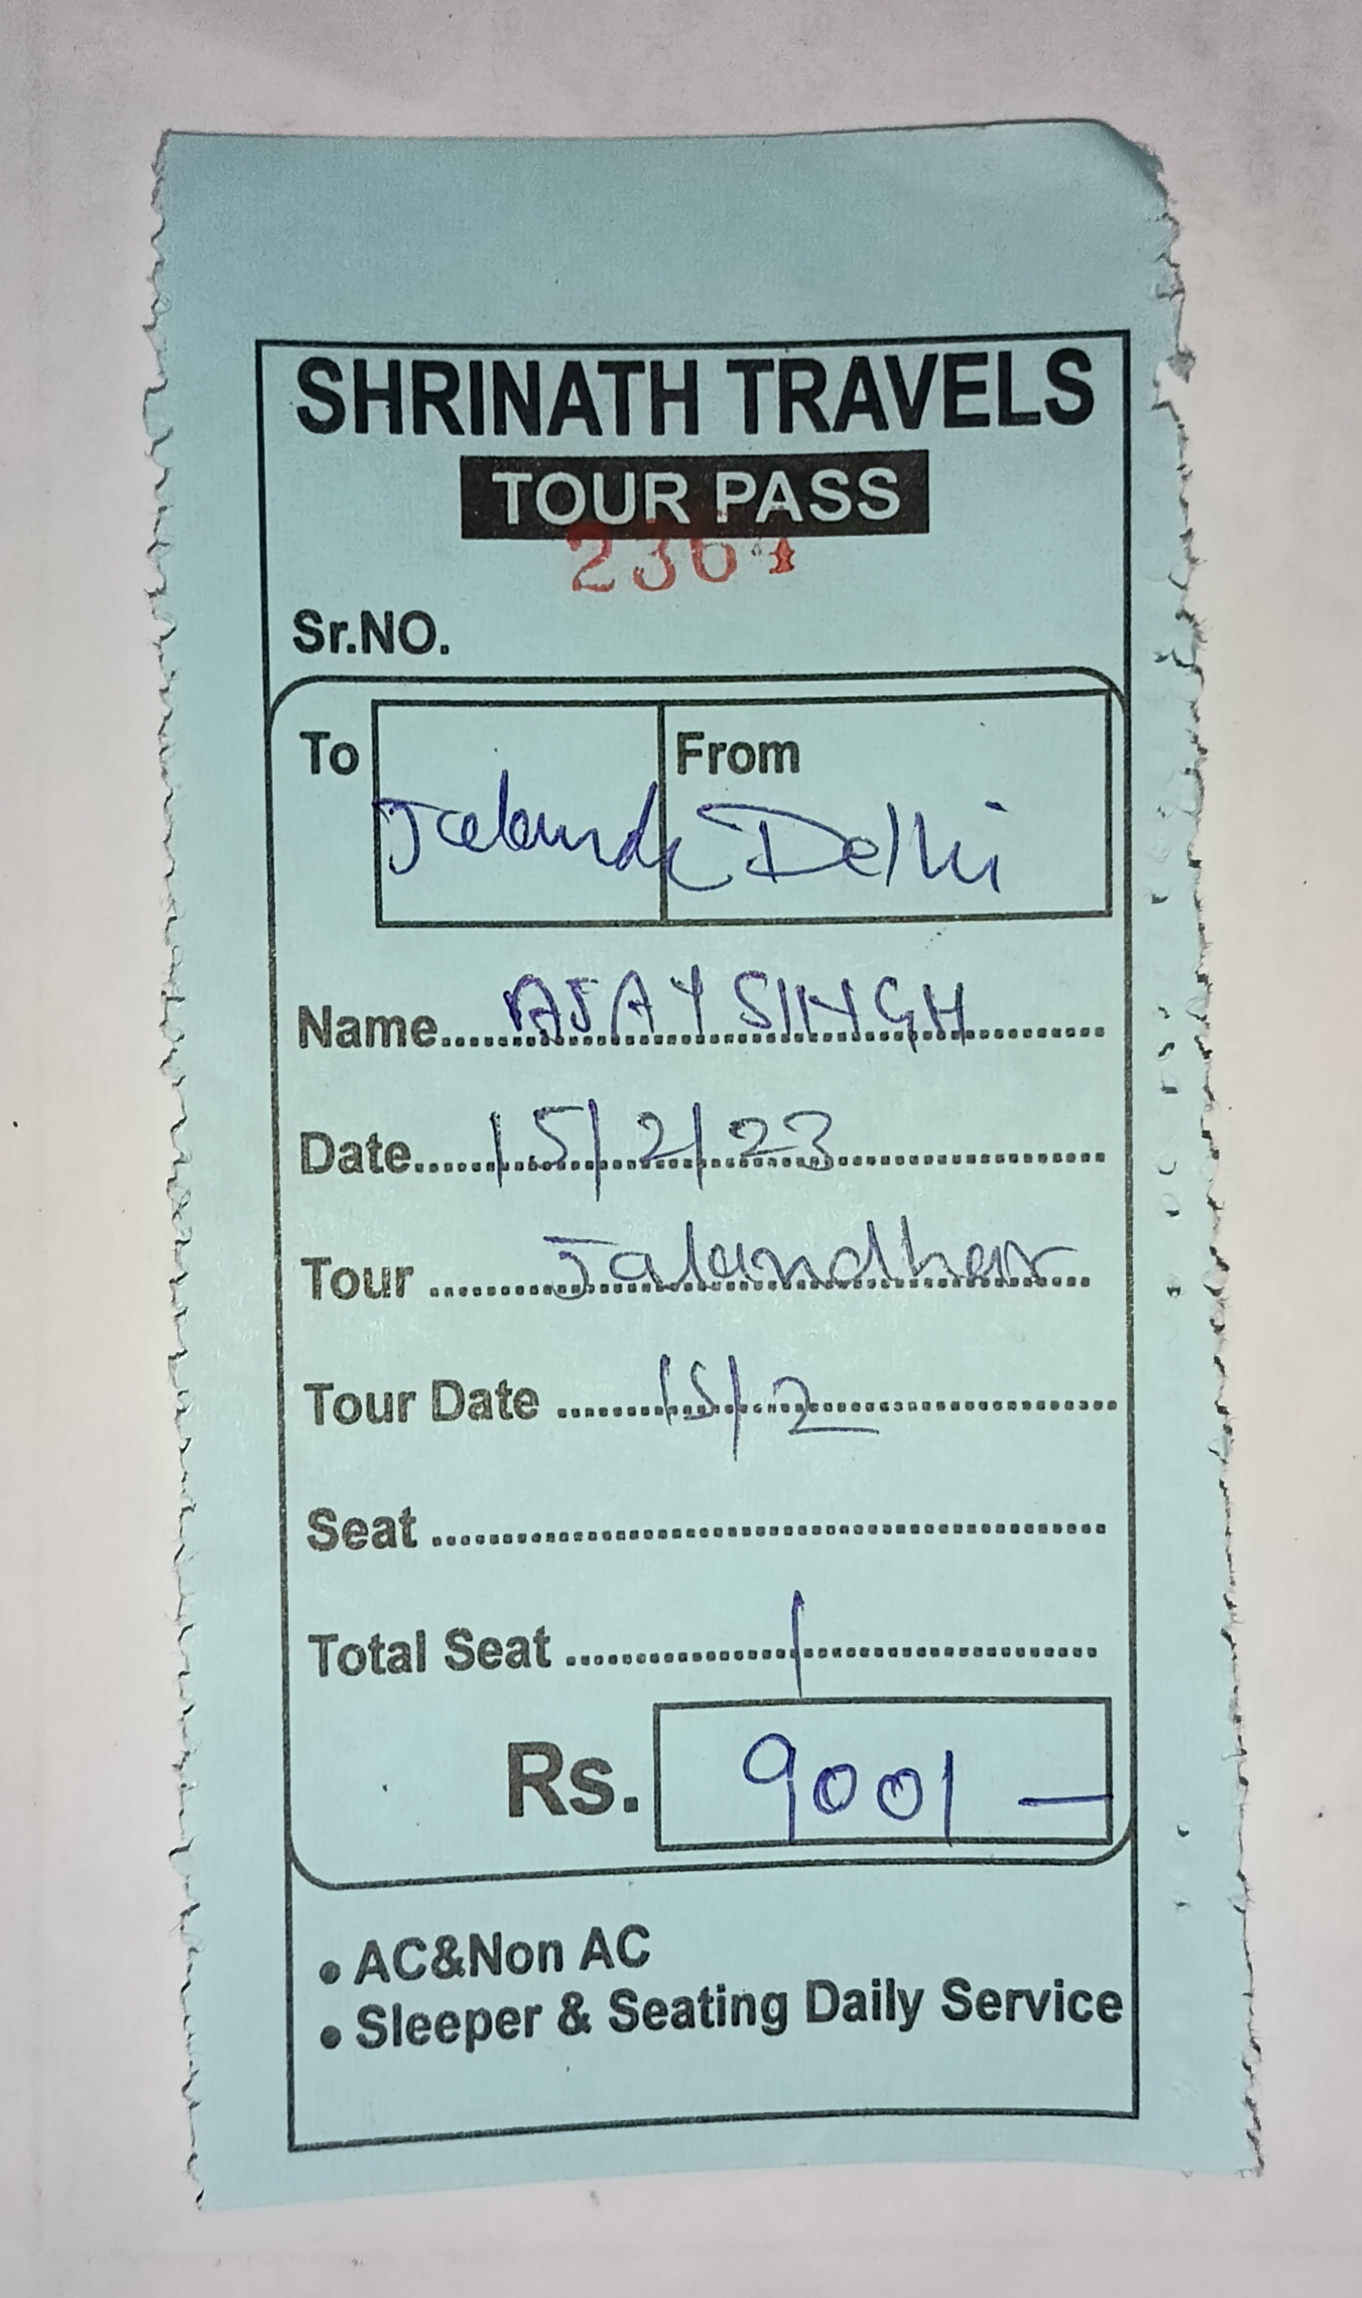 SHRINATH TRAVELS
TOUR PASS
2364
Sr.NO.
To From
Delhi
Name AJAY SINGH
Date 15/2/23
Tour Jalandhar
Tour Date 15/2
Seat
Total Seat 1
Rs. 900/—
• AC&Non AC
• Sleeper & Seating Daily Service